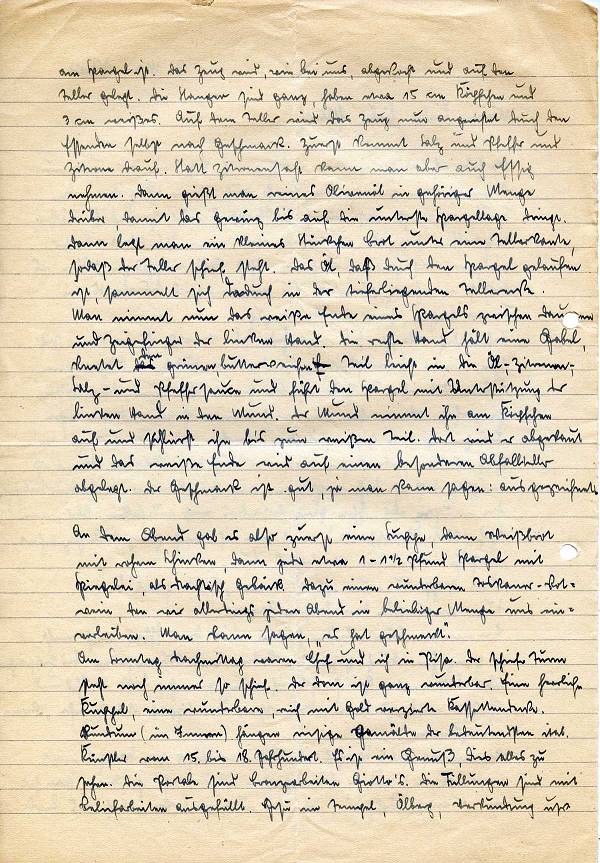 am Spargel ist. Das Zeug wird, wie bei uns, abgekocht und auf den
Teller gelegt. Die Stangen sind ganz, haben etwa 15 cm Köpfchen und
3 cm weißes. Auf dem Teller wird das Zeug nun angerichtet durch den
Essenden selbst nach Geschmack. Zuerst kommt Salz und Pfeffer und
Zitrone drauf. Statt Zitronensaft kann man aber auch Essig
nehmen. Dann gießt man reines Olivenöl in gehöriger Menge
drüber, damit das genug bis auf die unterste Spargellage dringt.
Dann legt man ein kleines Stückchen Brot unter eine Tellerkante,
sodaß der Teller schief steht. Das Öl, daß durch den Spargel gelaufen
ist, sammelt sich dadurch in der tieferliegenden Tellerecke.
Man nimmt nun das weiße Ende eines Spargels zwischen Daumen
und Zeigefinger der linken Hand. Die rechte Hand hält eine Gabel
den grünen butterweichen Teil leicht in die Öl-Zitronen-
Salz- und Pfeffersauce und führt den Spargel mit Unterstützung der
linken Hand in den Mund. Der Mund nimmt ihn am Köpfchen
auf und schlürft ihn bis zum weißen Teil. Dort wird er abgekaut
und das weiße Ende wird auf einen besonderen Abfallteller
abgelegt. Der Geschmack ist gut, ja man kann sagen: ausgezeichnet.
An dem Abend gab es also zuerst eine Suppe, dann Weißbrot
mit rohem Schinken, dann jeder etwa 1 - 1 1/2 Pfund Spargel mit
Spiegelei, als Nachtisch Gebäck. Dazu einen wunderbaren Toskaner-Rot-
wein, den wir allerdings jeden Abend in beliebiger Menge uns ein=
verleiben. Man kann sagen, "es hat geschmeckt".
Am Sonntag Nachmittag waren Chef und ich in Pisa. Der schiefe Turm
steht noch immer so schief. Der Dom ist ganz wunderbar. Eine herrliche
Kuppel, eine wunderbare, reich mit Gold verzierte Kassettendecke.
Rundum (im Innern) hängen riesige Gemälde der bedeutendsten ital.
Künstler vom 15. bis 18. Jahrhundert. Es ist ein Genuß, dies alles zu
sehen. Die Portale sind Bronzearbeiten Giotto's. Die Füllungen sind mit
Reliefarbeiten ausgefüllt. Jesu im Tempel, Ölberg, Verkündung usw